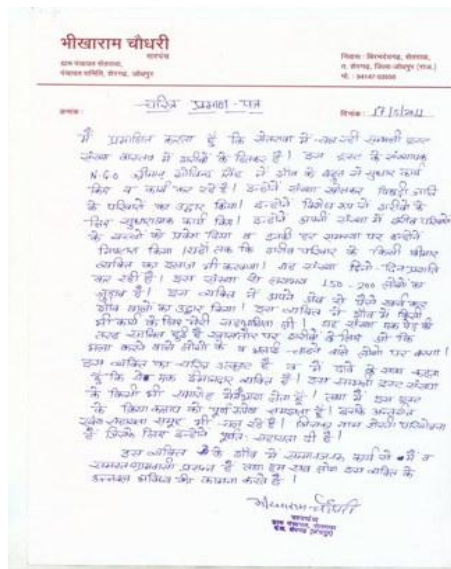 भीखाराम चौधरी
सरपंच
ग्राम पंचायत सेतरावा,
पंचायत समिति, शेरगढ़, जोधपुर
निवास : सेतरावा,
त. शेरगढ़, जिला-जोधपुर (राज.)
मो. : 94147
क्रमांक :
चरित्र प्रमाण-पत्र
दिनांक : 17/5/2011
मैं प्रमाणित करता हूँ कि सेतरावा में चल रही सम्भली ट्रस्ट
संस्था वास्तव में गरीबों के हितकर है। इस ट्रस्ट के संस्थापक
N.G.O श्रीमान् गोविन्द सिंह ने गाँव के बहुत से सुधार कार्य
किए व कार्य कर रहे हैं। इन्होंने संस्था खोलकर पिछड़ी जाति
के परिवारों का उद्धार किया। इन्होंने विशेष रूप से गरीबों के
लिए सुधारात्मक कार्य किए। इन्होंने अपनी संस्था में गरीब परिवारों
के बच्चों को प्रवेश दिया व इनकी हर समस्या पर इन्होंने
किया। यहाँ तक कि गरीब परिवार के किसी बीमार
व्यक्ति का इलाज भी करवाया। यह संस्था दिनों-दिन प्रगति
कर रही है। इस संस्था से लगभग 150-200 लोगों का
जुड़ाव है। इस व्यक्ति ने अपने गाँव से पैसे खर्च कर
गाँव वालों का उद्धार किया। इस व्यक्ति ने गाँव में किसी
भी कार्य के लिए मेरी सहभागिता ली। यह संस्था एक पेड़ की
तरह साबित हुई है खासतौर पर गरीबों के लिए जो कि
भला करने वाले लोगों के व भलाई चाहने वाले लोगों पर
इस व्यक्ति का चरित्र अच्छा है व मैं दावे के साथ कहता
हूँ कि ये एक ईमानदार व्यक्ति है। इस सम्भली ट्रस्ट संस्था
के किसी भी समारोह में भाग लेता हूँ। तथा मैं इस ट्रस्ट
के क्रिया कलाप को पूर्ण रूपेण समझता हूँ। इनके अन्तर्गत
स्वयं सहायता समूह भी चल रहे हैं। जिसका नाम सेतरावा परियोजना
है जिसके लिए इन्होंने पूर्णतः सहायता दी है।
इस व्यक्ति के गाँव में सम्मानजनक कार्य से मैं व
समस्त ग्रामवासी प्रसन्न हैं तथा हम सब लोग इस व्यक्ति के
उज्ज्वल भविष्य की कामना करते हैं।
भीखाराम चौधरी
सरपंच
ग्राम पंचायत, सेतरावा
पं.स. शेरगढ़ (जोधपुर)